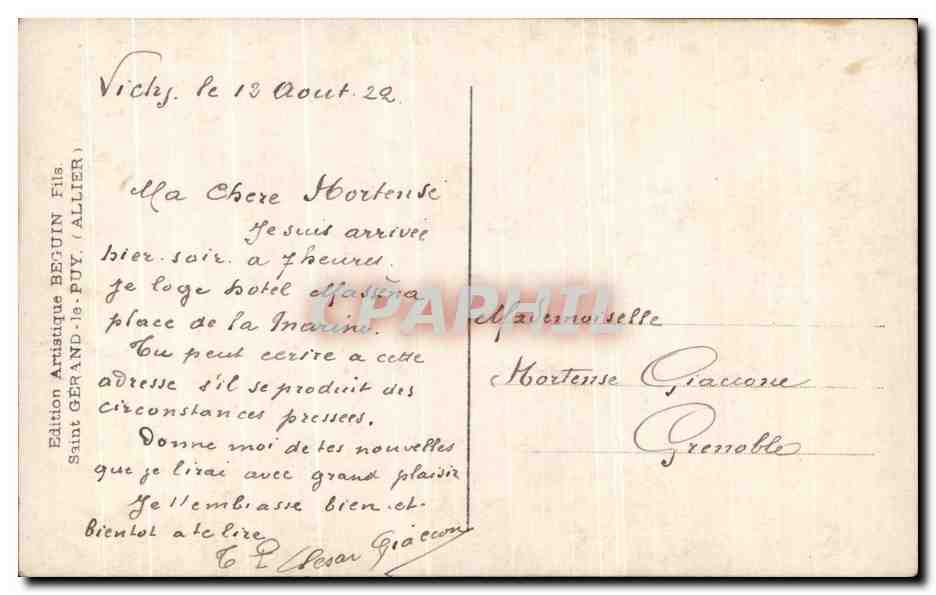 Edition Artistique BEGUIN Fils.
Saint GÉRAND-le-PUY. (ALLIER)
Vichy. le 13 Aout. 22.
Ma Chere Hortense
Je suis arrivée
hier. soir. a 7 heures.
Je loge hotel Masséna
place de la Marine.
Tu peut ecrire a cette
adresse s'il se produit des
circonstances pressées.
Donne moi de tes nouvelles
que je lirai avec grand plaisir
Je t'embrasse bien et
bientot a te lire
Cesar Giaccone
Mademoiselle
Hortense Giaccone
Grenoble
CPAPHIL